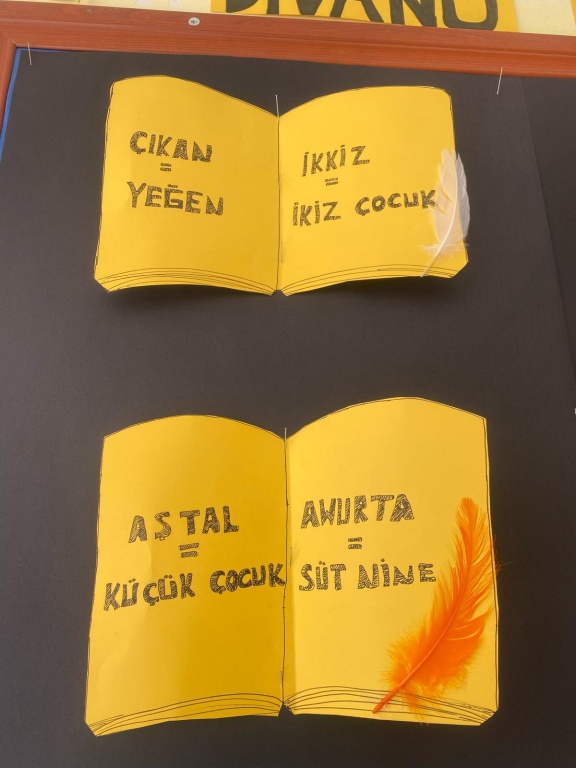 DİVANÜ
ÇIKAN
=
YEĞEN
İKKİZ
=
İKİZ ÇOCUK
AŞTAL
=
KÜÇÜK ÇOCUK
AWURTA
=
SÜT NİNE